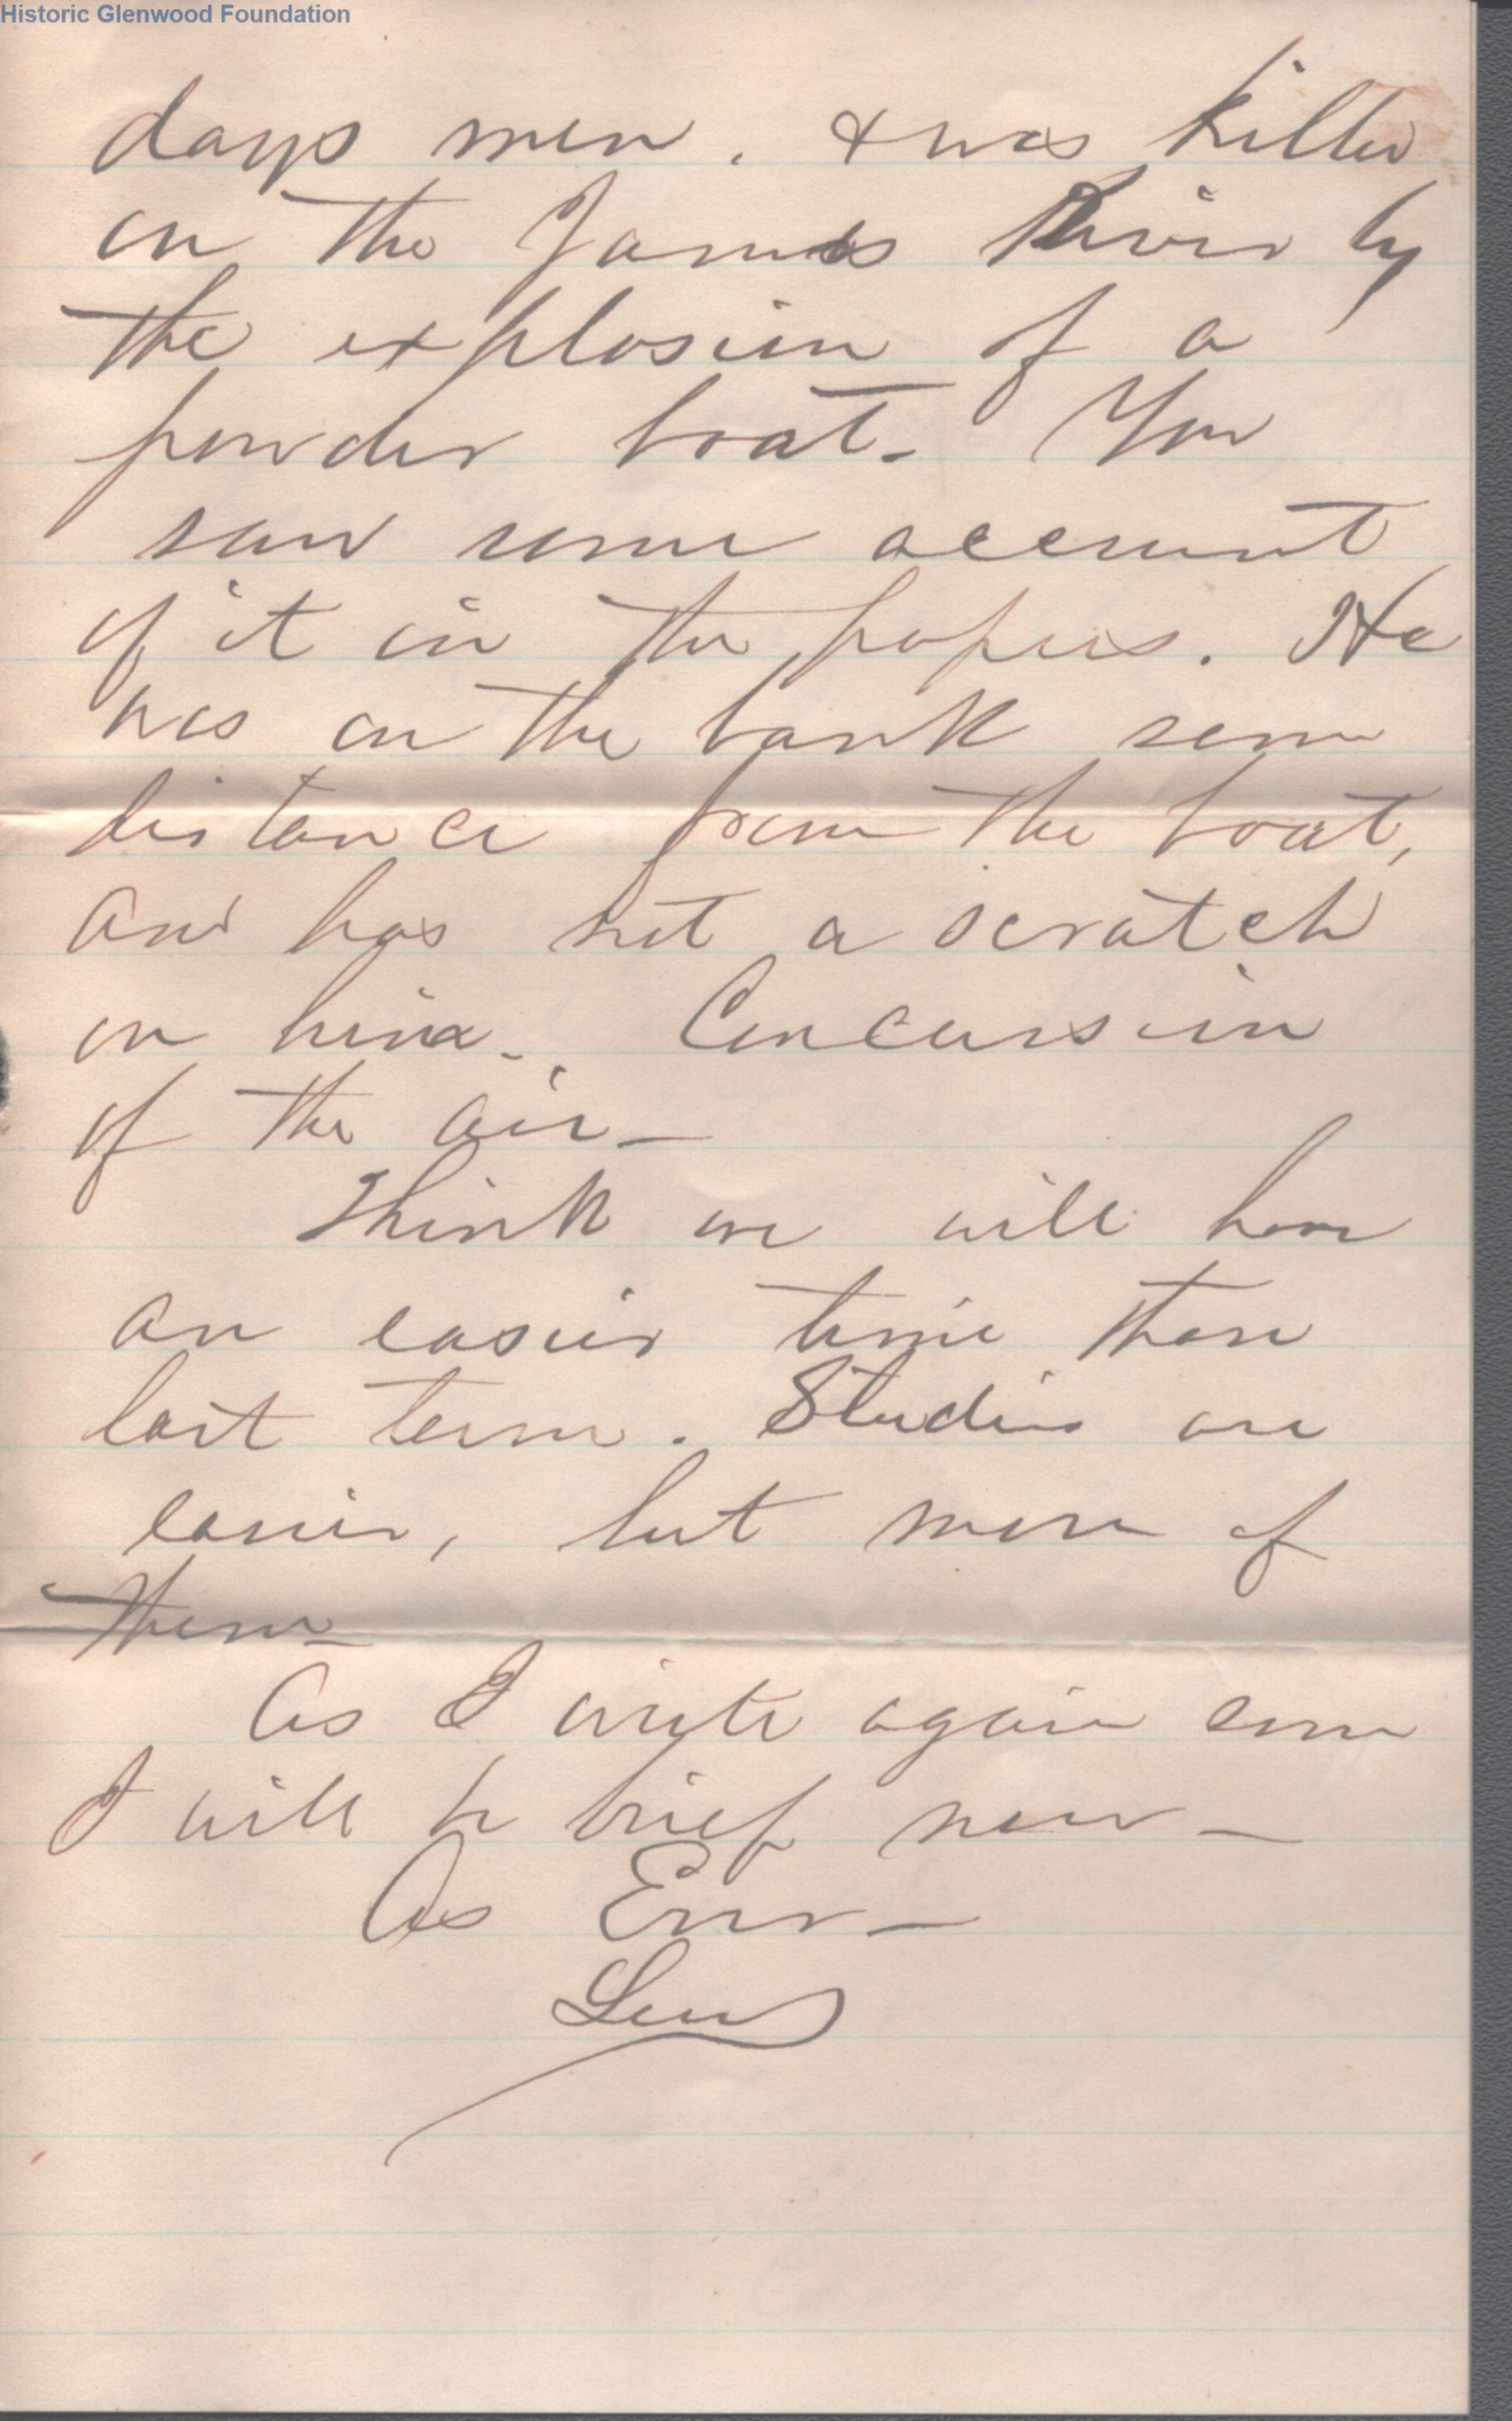 Historic Glenwood Foundation
days men. & was killed
on the James River by
the explosion of a
powder boat. You
saw some account
of it in the papers. He
was on the bank some
distance from the boat,
and has not a scratch
on him. Concussion
of the air —
Think we will have
an easier time than
last term. Studies are
easier, but more of
them —
As I write again soon
I will be brief now —
As Ever —
Lew